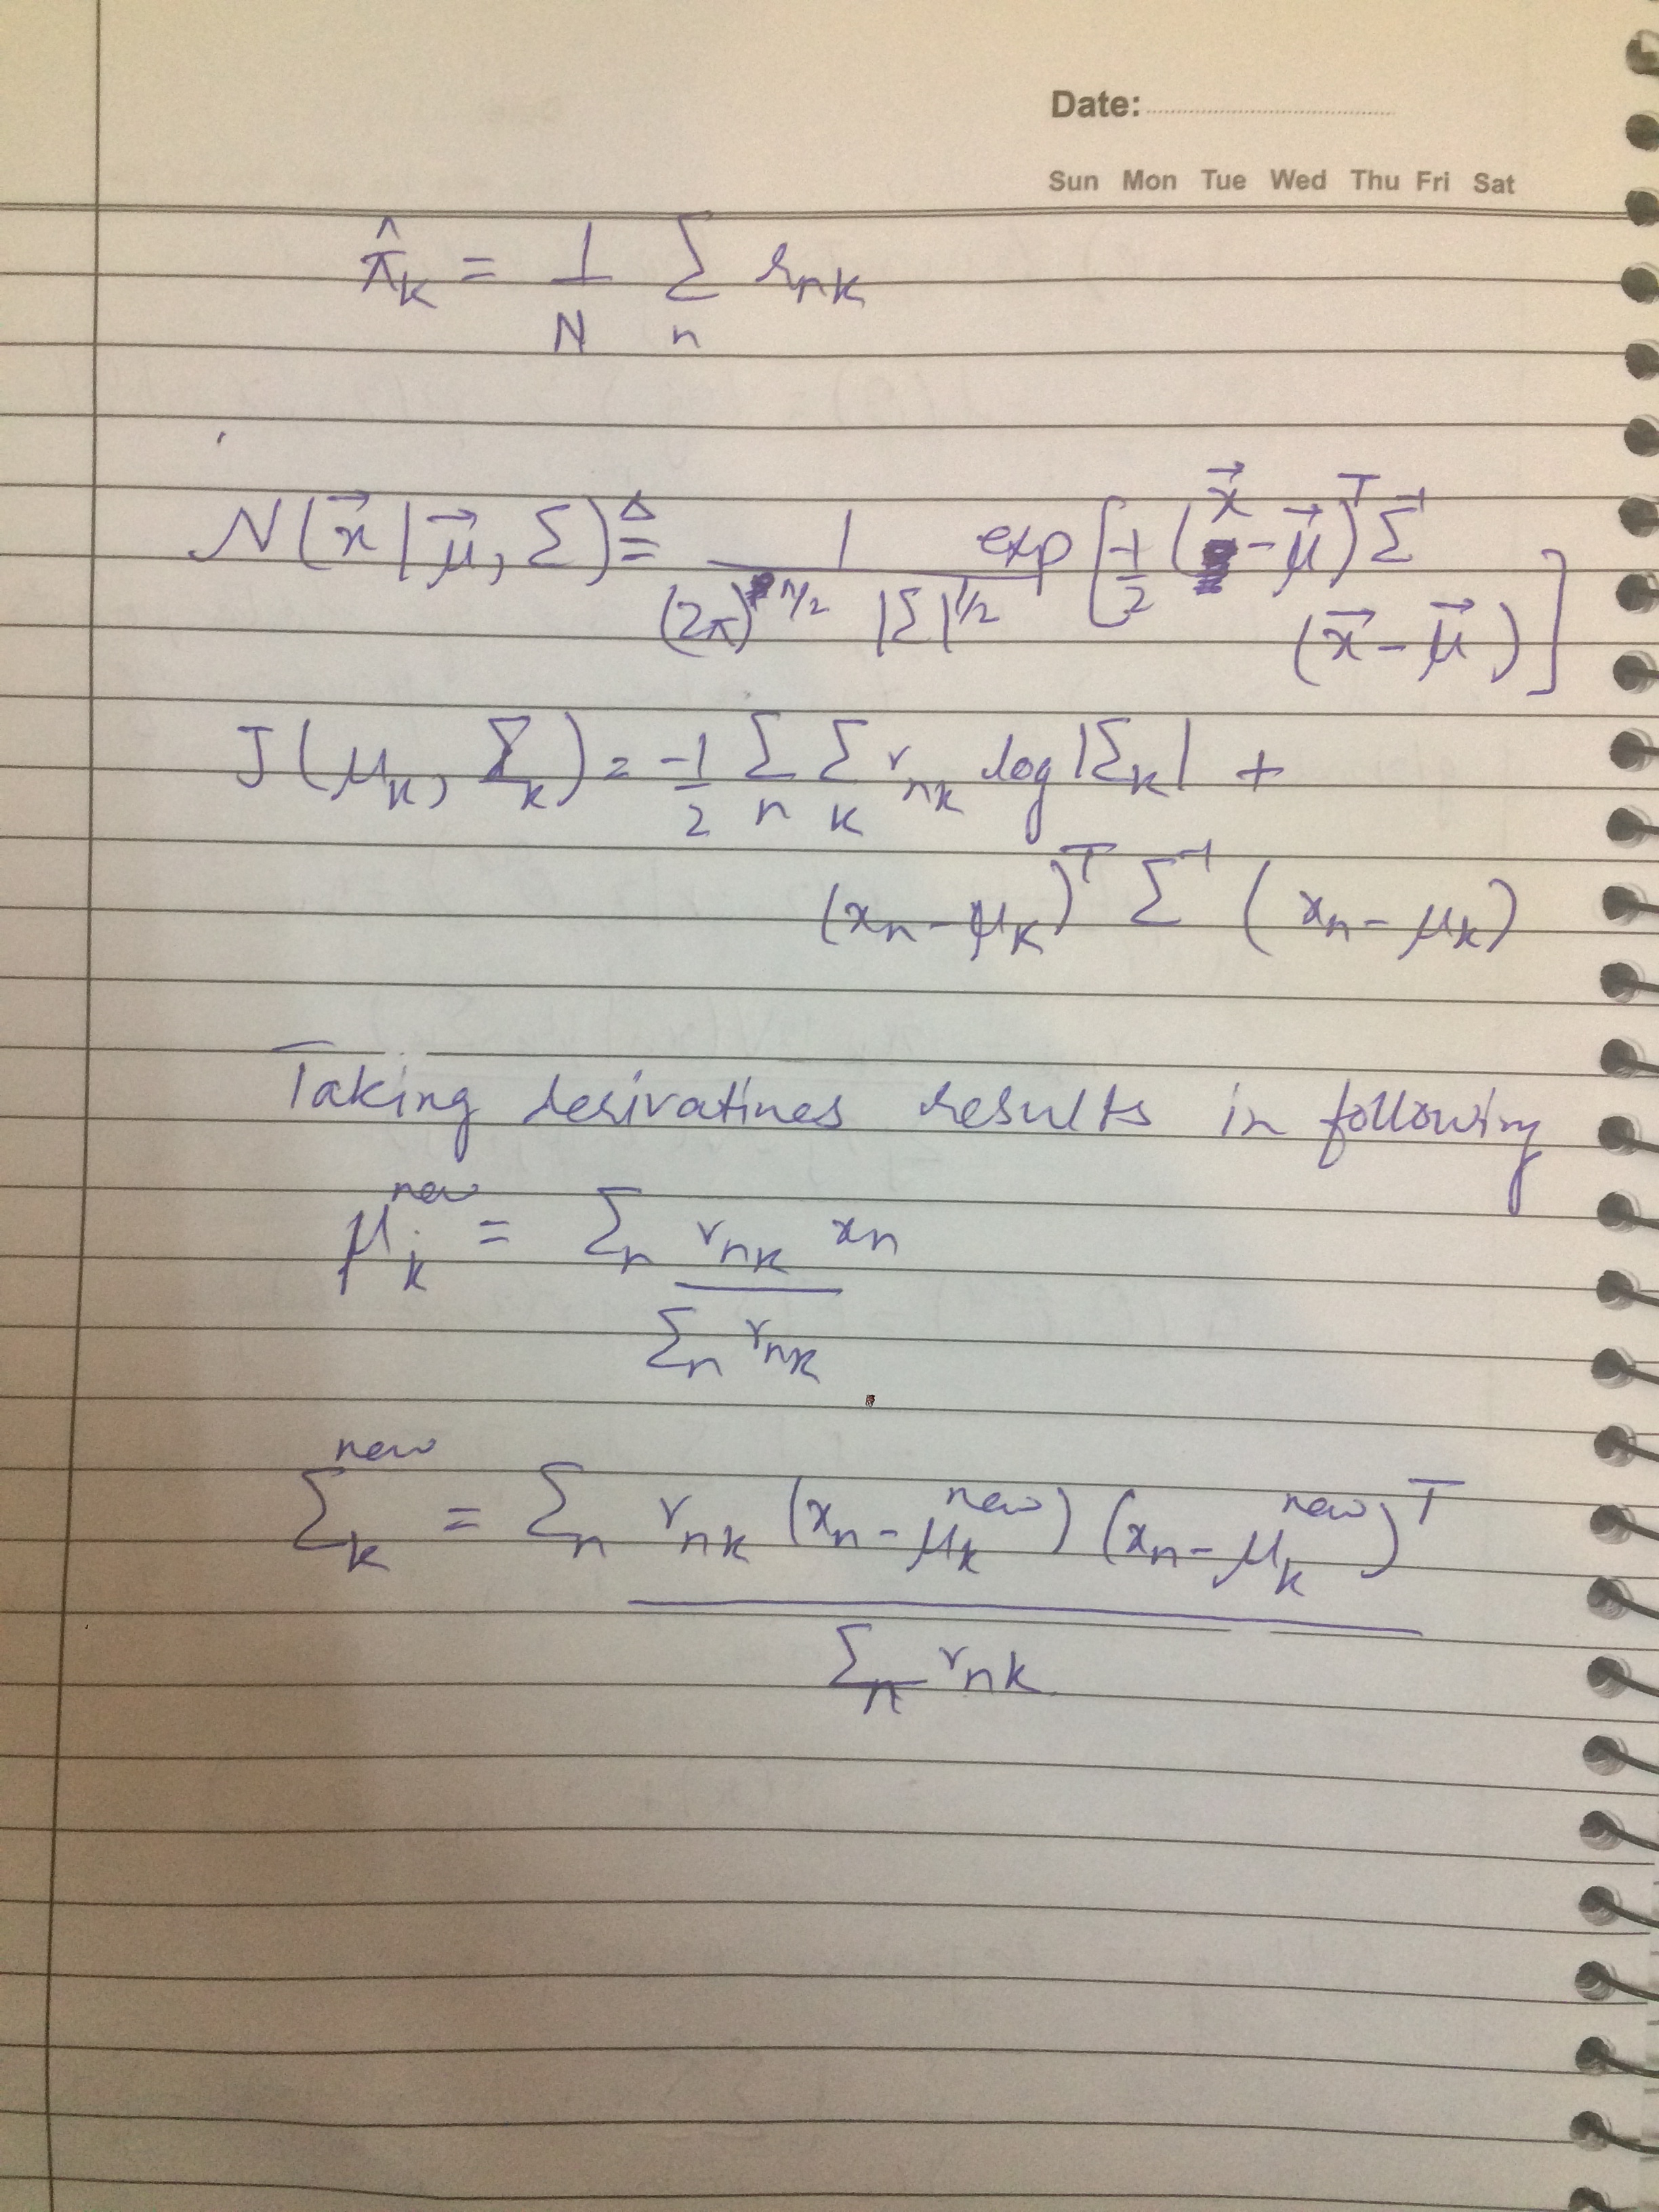 Date:
Sun Mon Tue Wed Thu Fri Sat
π̂_k = 1/N Σ_n r_nk
N(x⃗ | μ⃗, Σ) ≜ 1/((2π)^{n/2} |Σ|^{1/2}) exp[-1/2 (x⃗ - μ⃗)^T Σ^{-1}
(x⃗ - μ⃗)]
J(μ_k, Σ_k) = -1/2 Σ_n Σ_k r_nk log|Σ_k| +
(x_n - μ_k)^T Σ^{-1} (x_n - μ_k)
Taking derivatives results in following
μ_k^new = Σ_n r_nk x_n / Σ_n r_nk
Σ_k^new = Σ_n r_nk (x_n - μ_k^new) (x_n - μ_k^new)^T / Σ_n r_nk